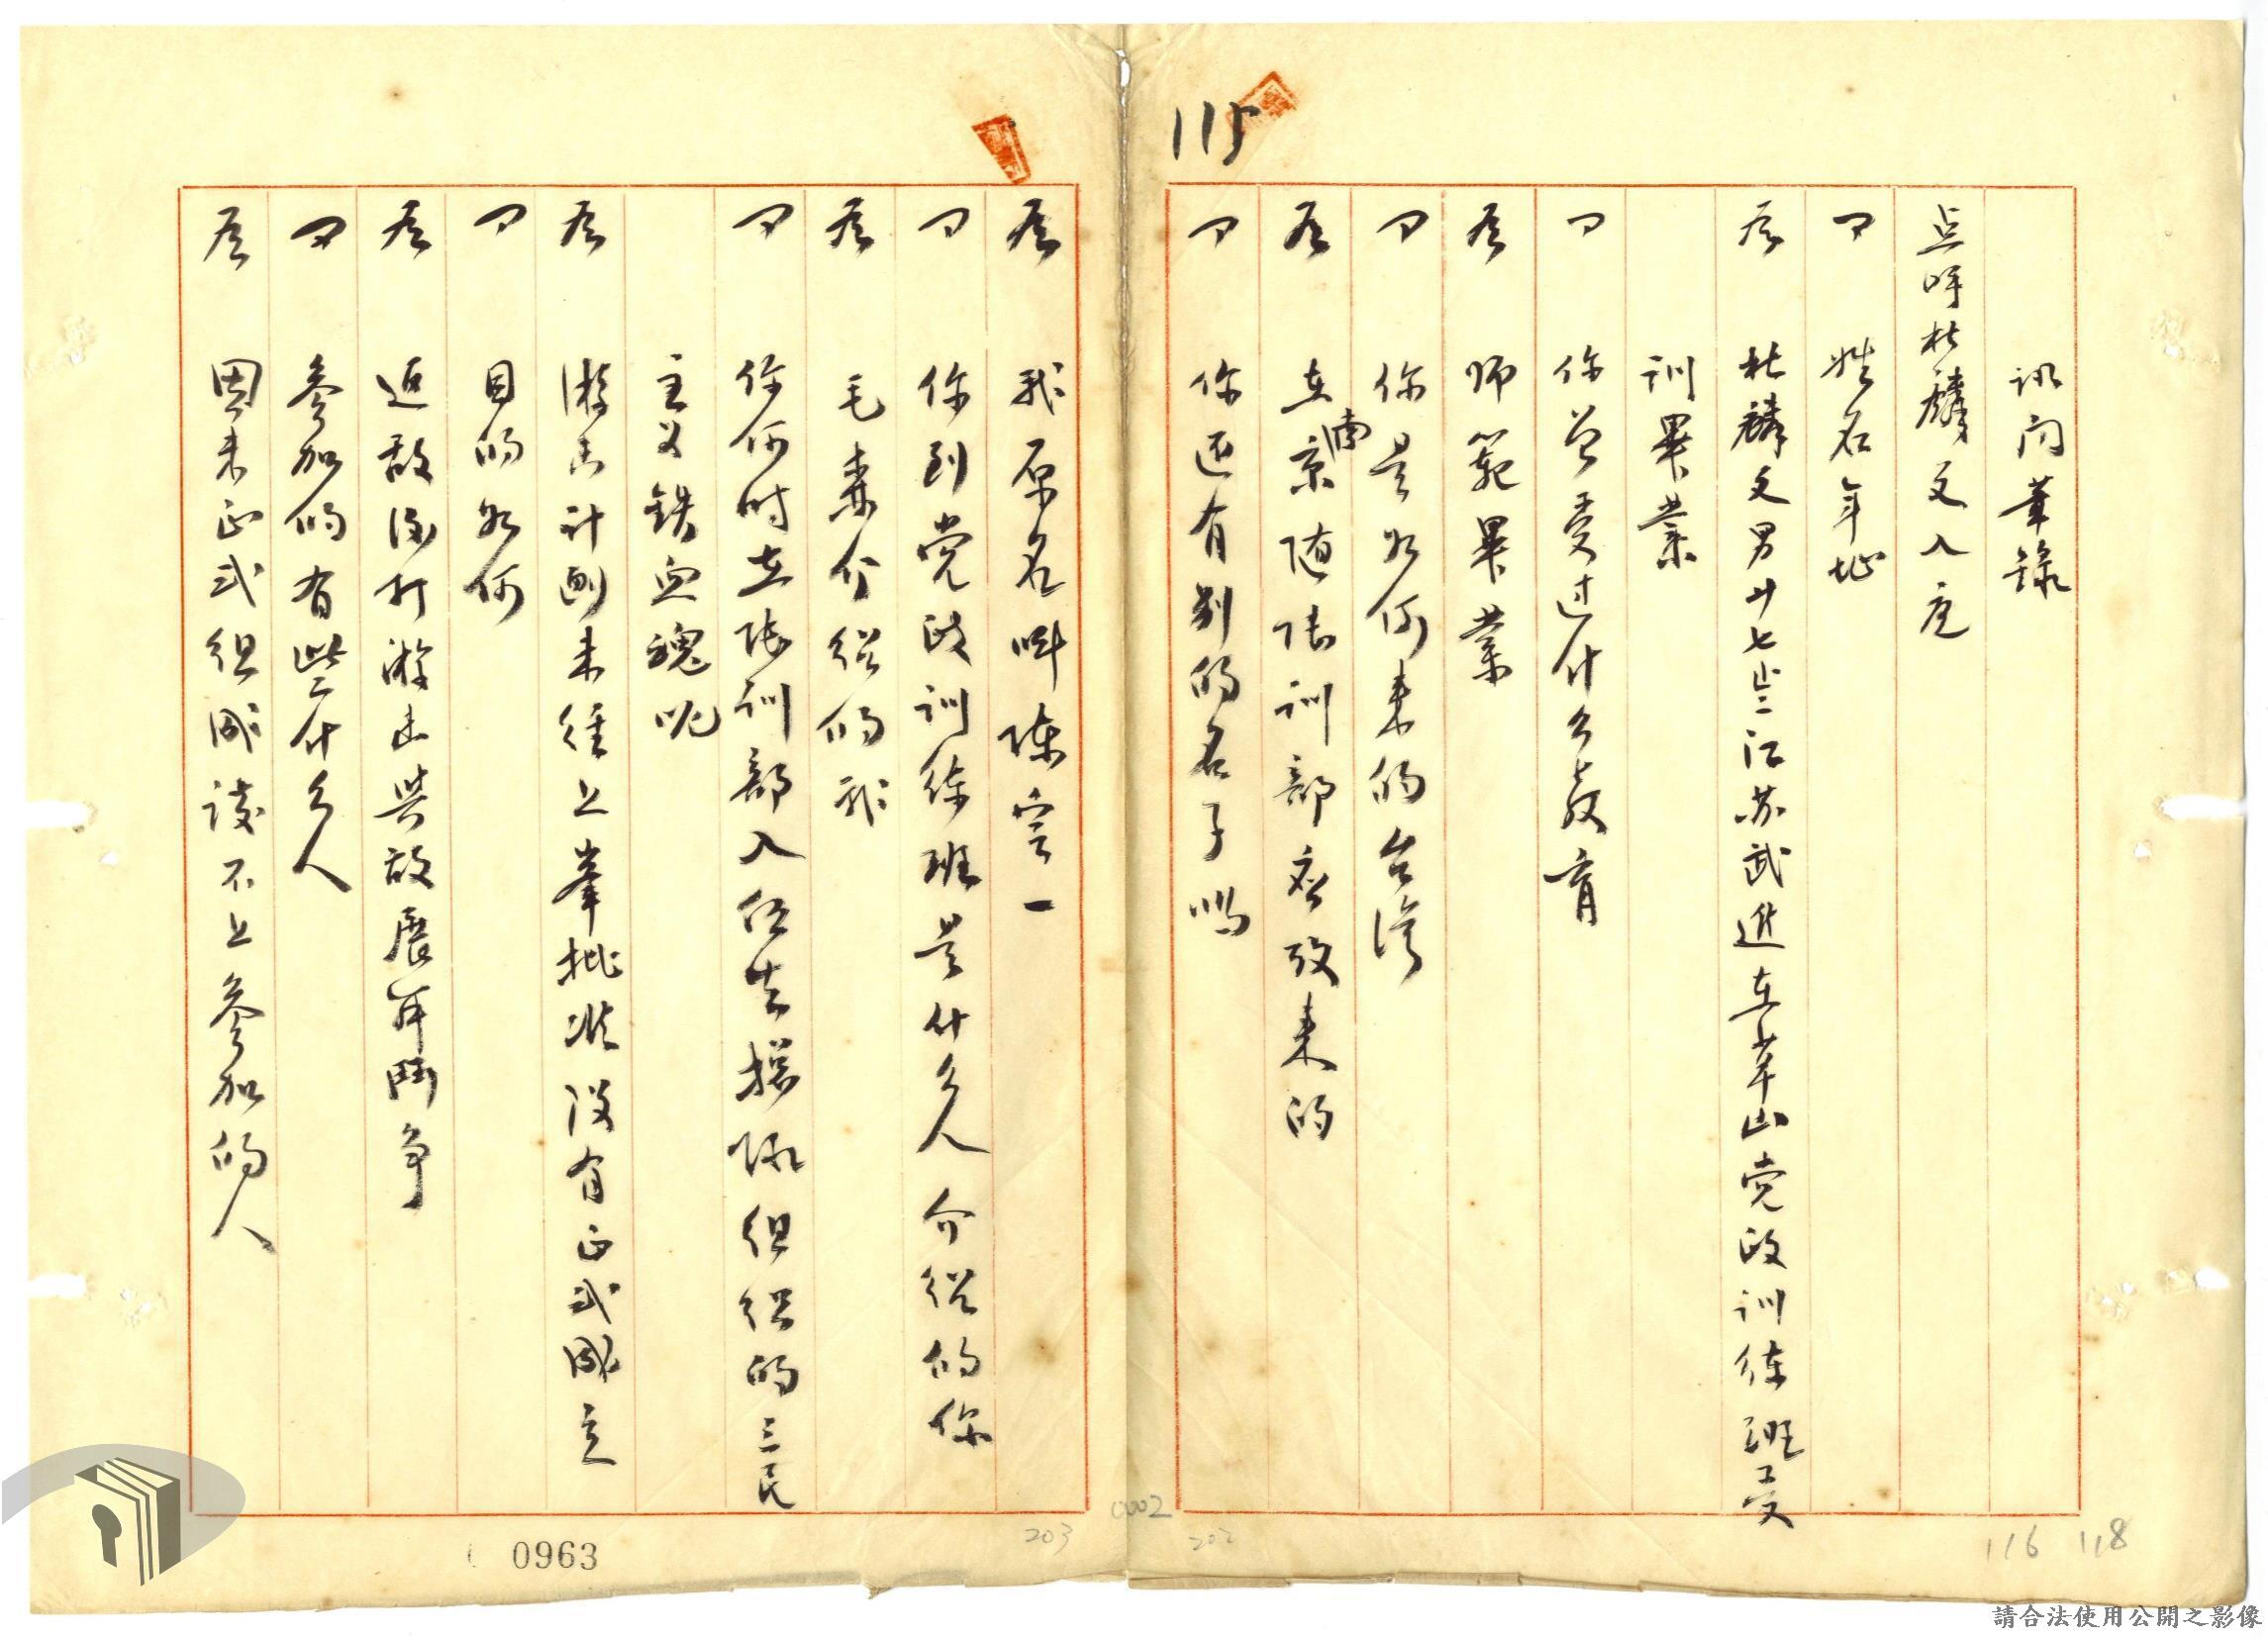 115
訊问筆錄
点呼杜麟文入庭
问 姓名年址
答 杜麟文男廿七岁江苏武進在草山党政训练班受
训畢業
问 你曾受过什么教育
答 师範畢業
问 你是如何来的台湾
答 在南京随陆训部疏散来的
问 你还有别的名子嗎
答 我原名叫陈定一
问 你到党政训练班是什么人介绍的
答 毛森介绍的我
问 你何时在陆训部入伍去组织的三民
主义铁血魂呢
答 游击计劃未经上峯批准没有正式成立
问 目的如何
答 返敌後打游击與敌展開鬥争
问 参加的有些什么人
答 因未正式组成談不上参加的人
0963
203
0002
202
116 118
請合法使用公開之影像